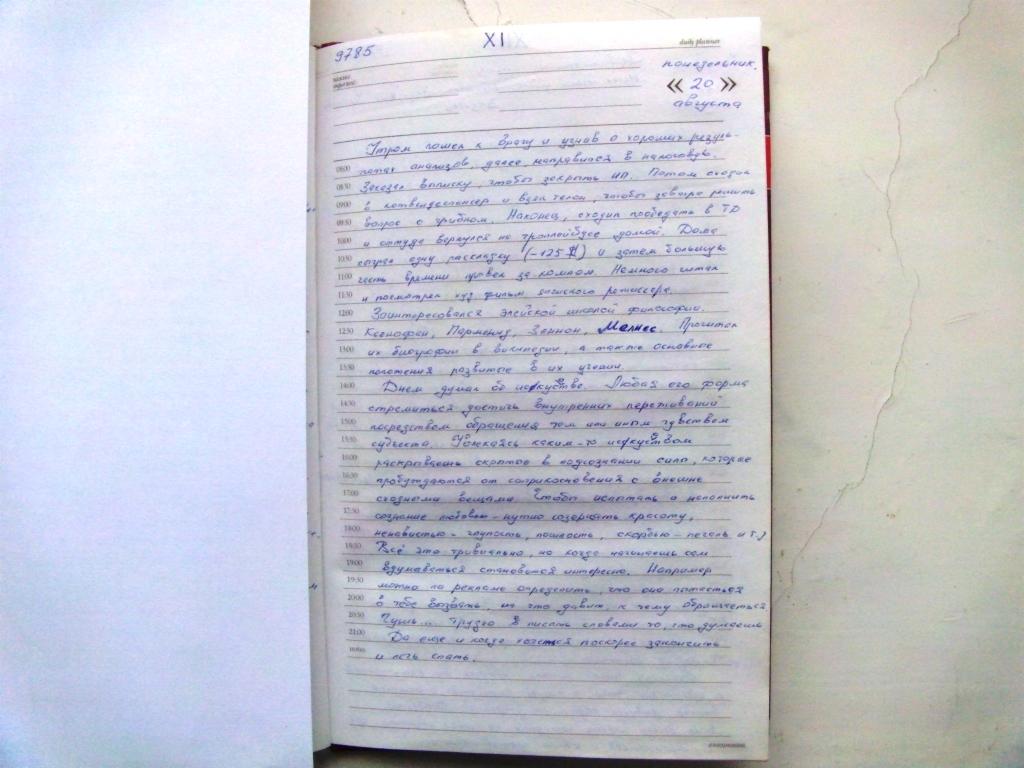 9785
XI
daily planner
понедельник.
« 20 »
августа
Утром пошел к врачу и узнав о хороших резуль-
татах анализов, далее, направился в налоговую.
08:00
08:30 Заказал выписку, чтобы закрыть ИП. Потом сходил
09:00 в кожвендиспансер и взял талон, чтобы завтра решить
09:30 вопрос с грибком. Наконец, сходил пообедать в ТД
10:00 и оттуда вернулся на троллейбусе домой. Дома
10:30 сыграл одну раскладку (-125 $) и затем большую
11:00 часть времени провел за компом. Немного читал
11:30 и посмотрел худ фильм датского режиссера.
12:00 Заинтересовался элейской школой философии.
12:30 Ксенофан, Парменид, Зенон, Мелисс. Прочитал
13:00 их биографии в википедии, а также основные
13:30 положения развитые в их учении.
14:00 Днем думал об искустве. Любая его форма
14:30 стремиться достичь внутренних переживаний
15:00 посредством обращения тем или иным чувством
15:30 субъекта. Увлекаясь каким-то искуством
16:00 раскрываешь скрытые в подсознании силы, которые
16:30 пробуждаются от соприкосновения с внешне
17:00 сходными вещами. Чтобы испытать и наполнить
17:30 сознание любовью - нужно созерцать красоту,
18:00 ненавистью - глупость, пошлость, скорбью - печаль и т.д
18:30 Всё это тривиально, но когда начинаешь сам
19:00 вдумываться становится интересно. Например
19:30 можно по рекламе определить, что она пытается
20:00 в тебе вызвать, на что давит, к чему обращается.
20:30 Чушь... трудно писать словами то, что думаешь
21:00 Да еще и когда хочется поскорее закончить
и лечь спать.